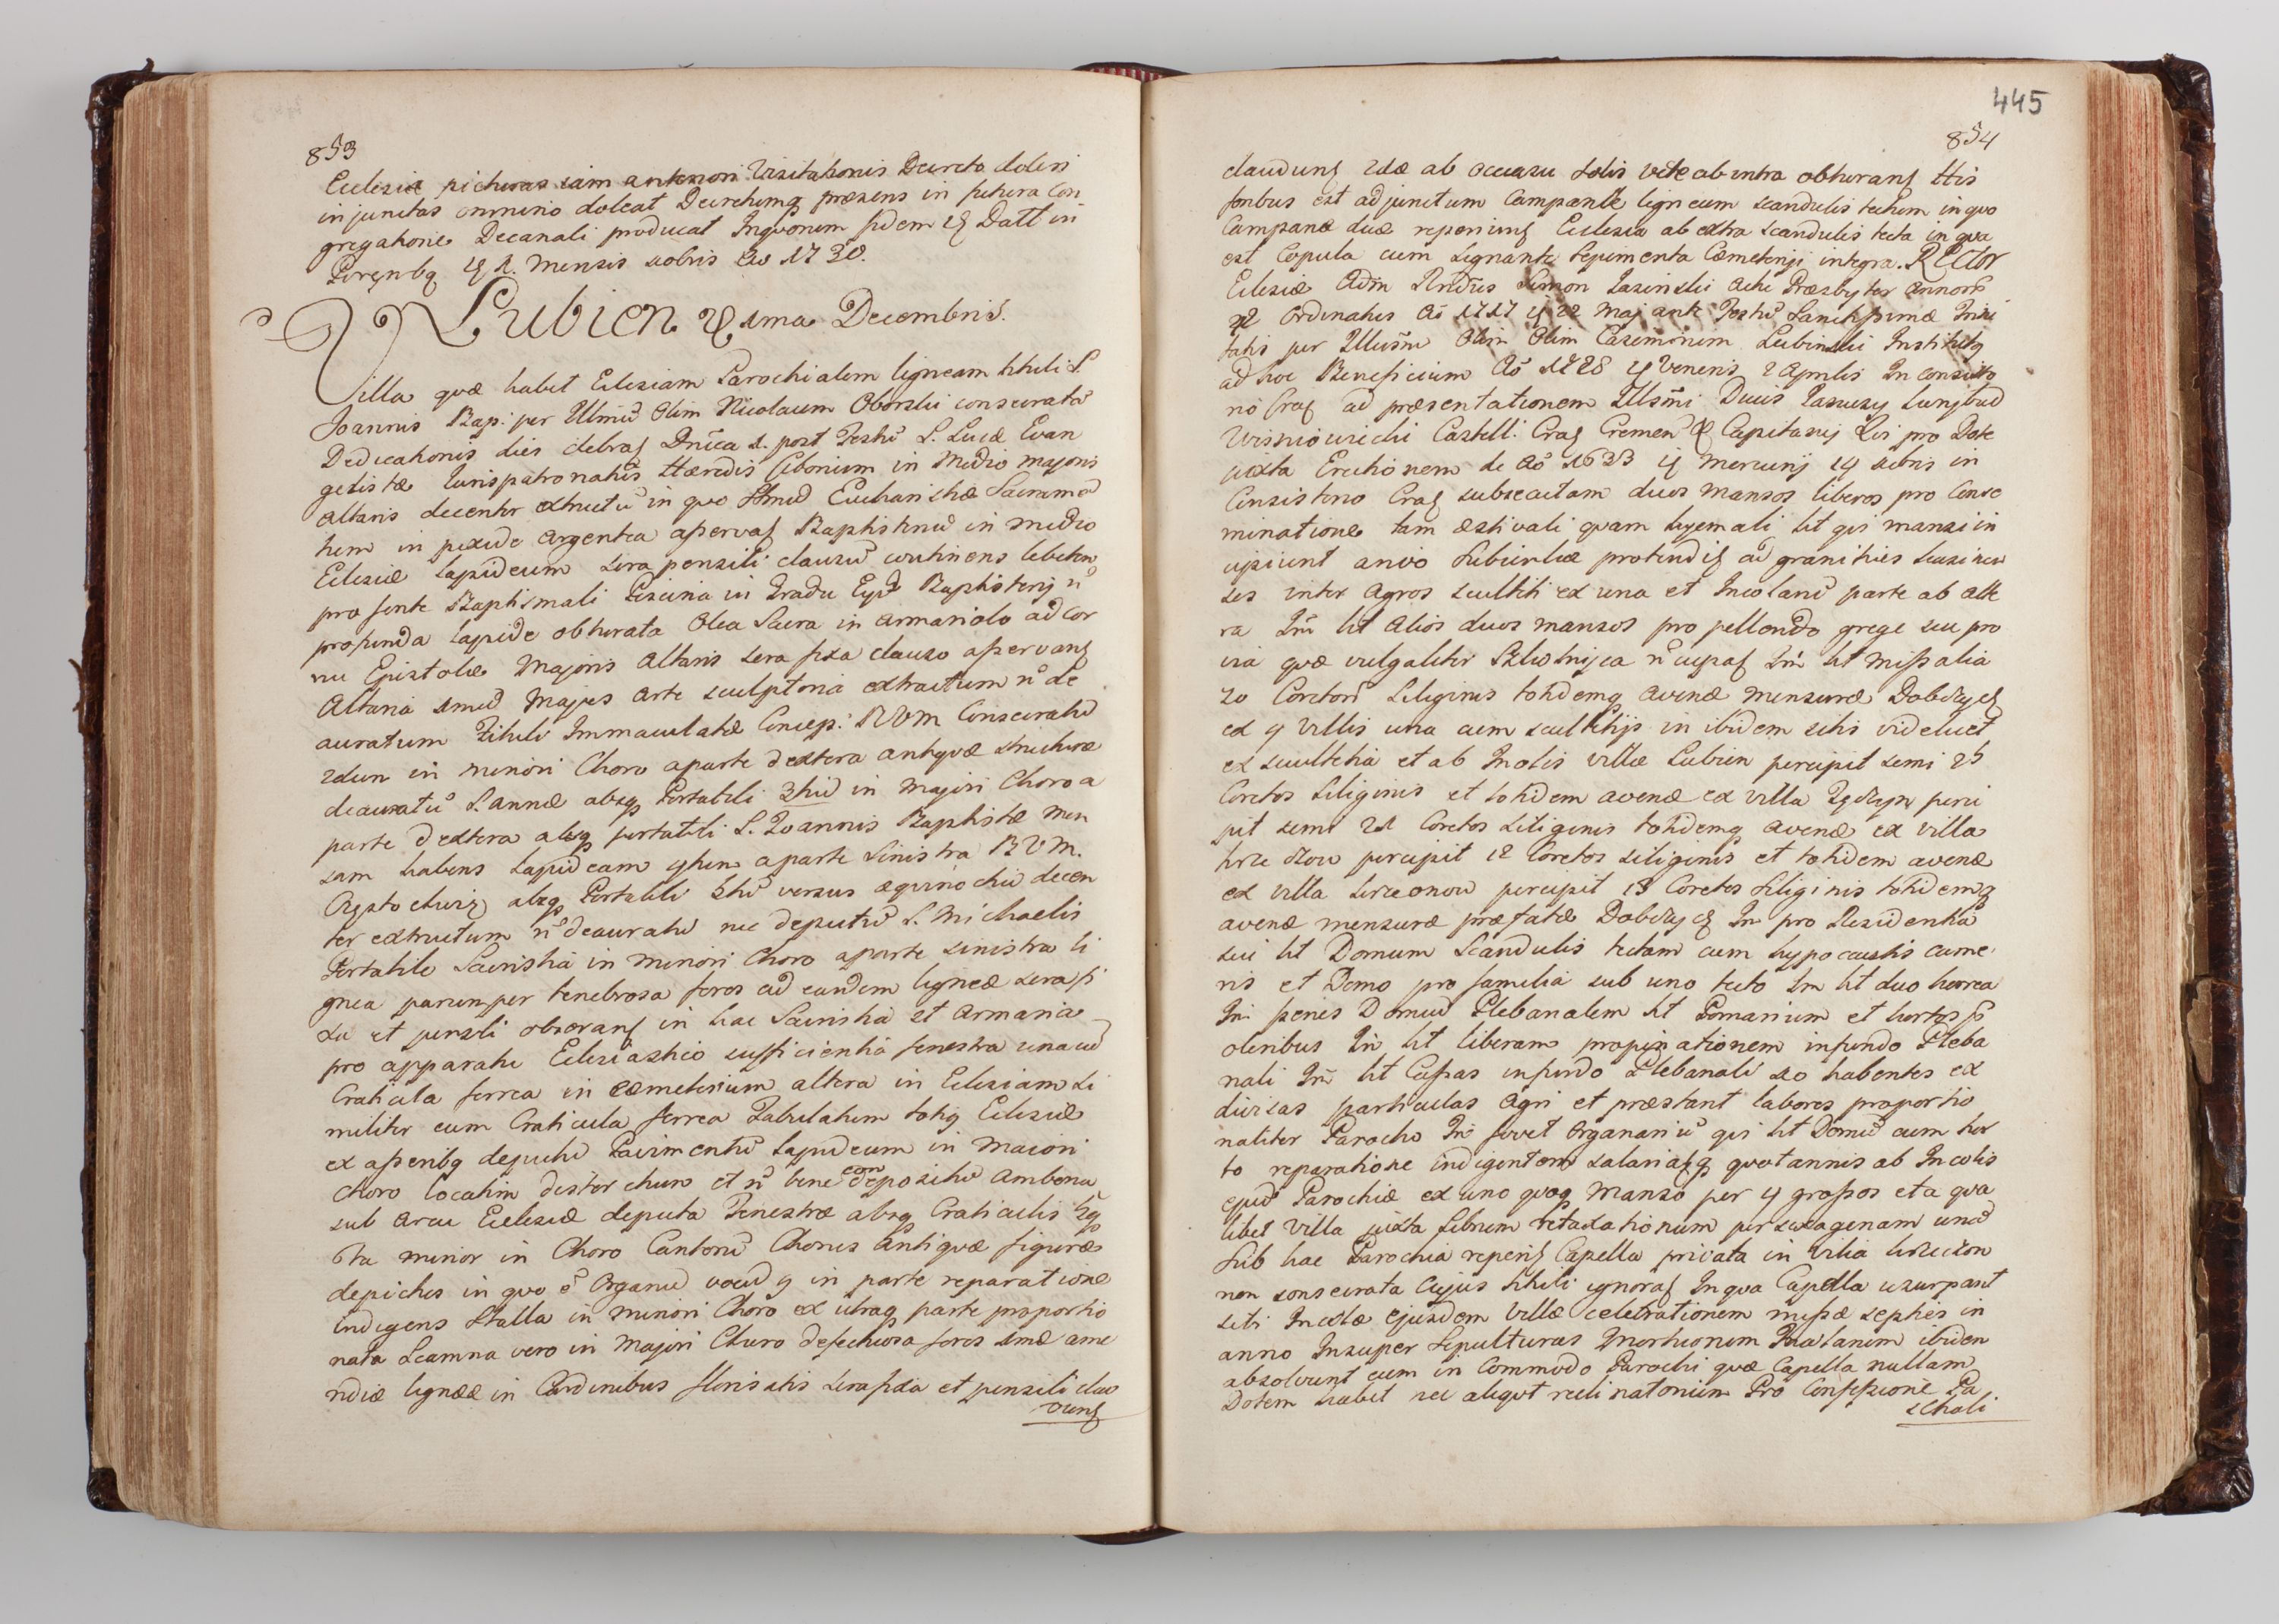 853
Ecclesiæ picturas iam anteriori Visitationis Decreto deleri
injunctas omnino doleat Decretumq præsens in futura Con
gregatione Decanali producat In quorum fidem Datt in
mensis xobris Ao 1730.
Lubien 2 xma Decembris.
Villa quæ habet Eclesiam Parochialem ligneam tituli S
Joannis Bap: per Illmũ Olim Nicolaum Oborski consecratã
Dedicationis dies celebraȝ Dnica 1. post Festũ S. Lucæ Evan
gelistæ Iurispatronatũs Hæredis Ciborium in Medio majoris
Altaris decenter extructũ in quo Smũ Eucharistiæ Sacramẽ
tum in pixide argentea asservaȝ Baptistriũ in medio
Eclesiæ lapideum sera pensili clausũ continens lebetem
pro fonte Baptismali Piscina in Gradu Baptisterij ñ
profunda lapide obturata Olea Sacra in armariolo ad cor
nu Epistolæ Majoris Altaris sera fixa clauso asservanȝ
Altaria 1mũ Majus arte sculptoria extructum ñ de
auratum Tituli Immaculatæ Concep: BVM Consecratũ
2dum in minori Choro a parte dextera antiquæ structuræ
deauratũ S. Annæ absq Portatili 3tiũ in Majori Choro a
parte dextera absq portatili S. Joannis Baptistæ Men
sam habens lapideam 4tum a parte Sinistra BVM.
absq Portatili 5tũ versus æquinoctiũ decen
ter extructum ñ deauratũ nec depictũ S. Michaelis
Portatile Sacristia in minori Choro a parte sinistra li
gnea parumper tenebrosa fores ad eandem ligneæ sera fi
xa et pensili obseranȝ in hac Sacristia st Armaria
pro apparatu Eclesiastico sufficientia fenestra una cũ
Craticula ferrea in cæmeterium altera in Eclesiam si
militer cum Craticula ferrea Tabulatum totiq Eclesiæ
ex asseribq depictũ Pavimentũ lapideum in Maiori
Choro locatim distortum et ñ bene compositũ Ambona
sub arcu Eclesiæ depicta Fenestræ absq Craticulis
minor in Choro Cantorũ Chorus Antiquæ figuræ
depictus in quo ẽ Organũ vocũ 9 in parte reparatione
indigens Stalla in minori Choro ex utraq parte proportio
nata Scamna vero in Majori Choro defectuosa fores 1mæ
ridie ligneæ in Cardinibus sera fixa et pensili clau
dunȝ
445
854
claudunȝ 2dæ ab occasu solis vecte ab intra obturanȝ His
foribus est adjunctum Campanile ligneum scandulis tectum in quo
Campanæ duæ reperiunȝ Eclesia ab extra scandulis tecta in qua
est Copula cum Signante Sepimenta Cæmeterij integra. Rector
Eclesiæ Adm Rndus Simon Iasinski Presbyter Annorũ
Ordinatus Aõ 1717 22 Maj ante Festũ Sanctissimæ Trini
tatis per Illustm Olim Casimirum Lubinski Institutq
ad hoc Beneficium Aõ 1728 Veneris 2 Aprilis In Consisto
rio Craȝ ad præsentationem Illsmi Ducis
Wisniowiecki Castell. Craȝ Cremen & Capitanij pro Dote
juxta Erectionem de Aõ 1633 Mercurij 14 xbris in
Consistorio Craȝ subsecutam duos mansos liberos pro Conse
minatione tam æstivali quam hyemali ht qui mansi in
cipiunt a rivo ad granities
ses inter agros sculteti ex una et Incolarũ parte ab alte
ra Itm ht Alios duos mansos pro pellendo grege seu pro
via quæ vulgaliter ñ Itm ht Missalia
20 Coretorũ Siliginis totidemq avenæ mensuræ
ex 4 Villis una cum scultetijs in ibidem sitis videlicet
ex scultetia et ab Incolis villæ Lubien percipit semi 25
Coretos Siliginis et totidem avenæ ex villa perci
pit semi 21 Coretos siliginis totidemq avenæ ex villa
percipit 12 Coretos siliginis et totidem avenæ
ex villa percipit 13 Coretos Siliginis totidemq
avenæ mensuræ præfatæ Itm pro Residentia
sui ht Domum Scandulis tectam cum hypocaustis came
ris et Domo pro familia sub uno tecto Itm ht duo horrea
Itm penes Domũ Plebanalem ht Pomarium et hortos p
oleribus Itm ht liberam propinationem in fundo Pleba
nali Itm ht Casas in fundo Plebanali 10 habentes ex
divisas particulas Agri et præstant labores proportio
naliter Parocho Itm fovet Organariũ qui ht Domũ cum hor
to reparatione indigentem salariaȝq quotannis ab Incolis
ejusd Parochiæ ex uno quoq Manso per 4 grossos et a qua
libet Villa juxta Librum retaxationum per sexagenam unã
Sub hac Parochia reperiȝ Capella privata in Villa
non consecrata Cujus tituli ignoraȝ In qua Capella usurpant
sibi Incolæ Ejusdem Villæ celebrationem missæ septies in
anno Insuper Sepulturas Mortuorum Incolarum ibidem
absolvunt cum in Commodo Parochi quæ Capella nullam
Dotem habet nec aliquot reclinatorium Pro Confessione Pa
schali